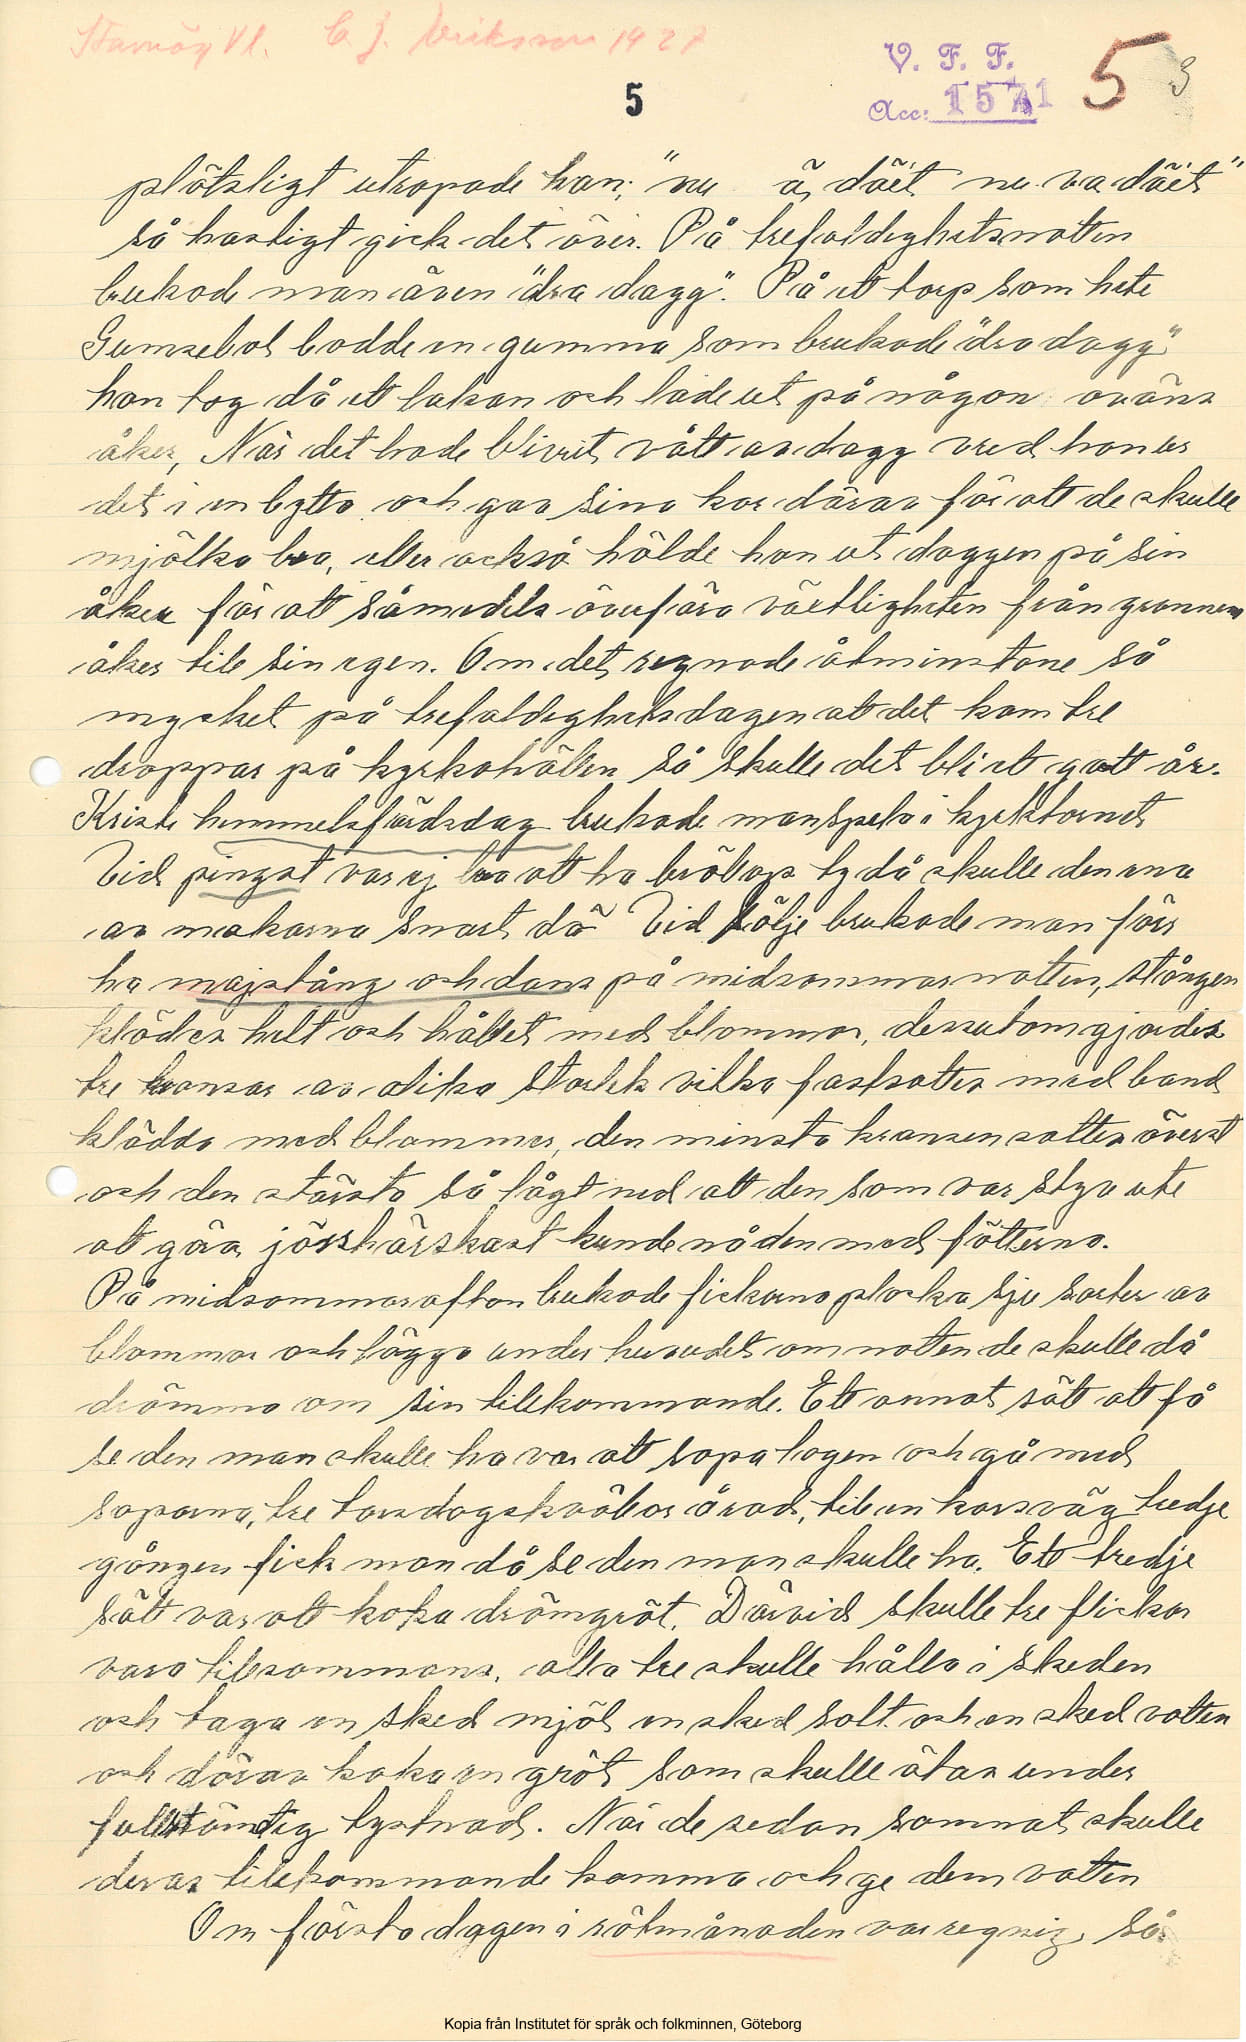 C. J. Eriksson 1927
V. F. F.
5
3
5
Acc: 1571
plötsligt utropade han; "nu ä däet nu va däet"
så hastigt gick det över. På trefaldighetsnatten
brukade man även "dra dagg". På ett torp som hete
Gumsebol bodde en gumma som brukade "dra dagg"
hon tog då ett lakan och lade ut på någon oväns
åker, När det hade blivit vått av dagg vred hon ur
det i en bytta och gav sina kor därav för att de skulle
mjölka bra, eller också hölde hon ut daggen på sin
åker för att såmedels överföra växtligheten från grannens
åker till sin egen. Om det regnade åtminstone så
mycket på trefaldighetsdagen att det kom tre
droppar på kyrkohällen så skulle det bli ett gott år.
Kristi himmelsfärdsdag brukade man spela i kyrktornet
Vid pingst var ej bra att ha bröllop ty då skulle den ena
av makarna snart dö Vid Hölje brukade man förr
ha majstång och dans på midsommarnatten, stången
kläddes helt och hållet med blommor, dessutom gjordes
tre kransar av olika storlek vilka fastsattes med band
klädda med blommor, den minsta kransen sattes överst
och den största så lågt ned att den som var styv ute
att göra jösshärskast kunde nå den med fötterna.
På midsommarafton brukade flickorna plocka sju sorter av
blommor och lägga under huvudet om natten de skulle då
drömma om sin tillkommande. Ett annat sätt att få
se den man skulle ha var att sopa logen och gå med
soporna, tre torsdagskvällar å rad, till en korsväg tredje
gången fick man då se den man skulle ha. Ett tredje
sätt var att koka drömgröt. Därvid skulle tre flickor
vara tillsammans, alla tre skulle hålla i skeden
och taga en sked mjöl en sked salt och en sked vatten
och därav koka en gröt som skulle ätas under
fullständig tystnad. När de sedan somnat skulle
deras tillkommande komma och ge dem vatten
Om första dagen i rötmånaden var regnig, så
Kopia från Institutet för språk och folkminnen, Göteborg